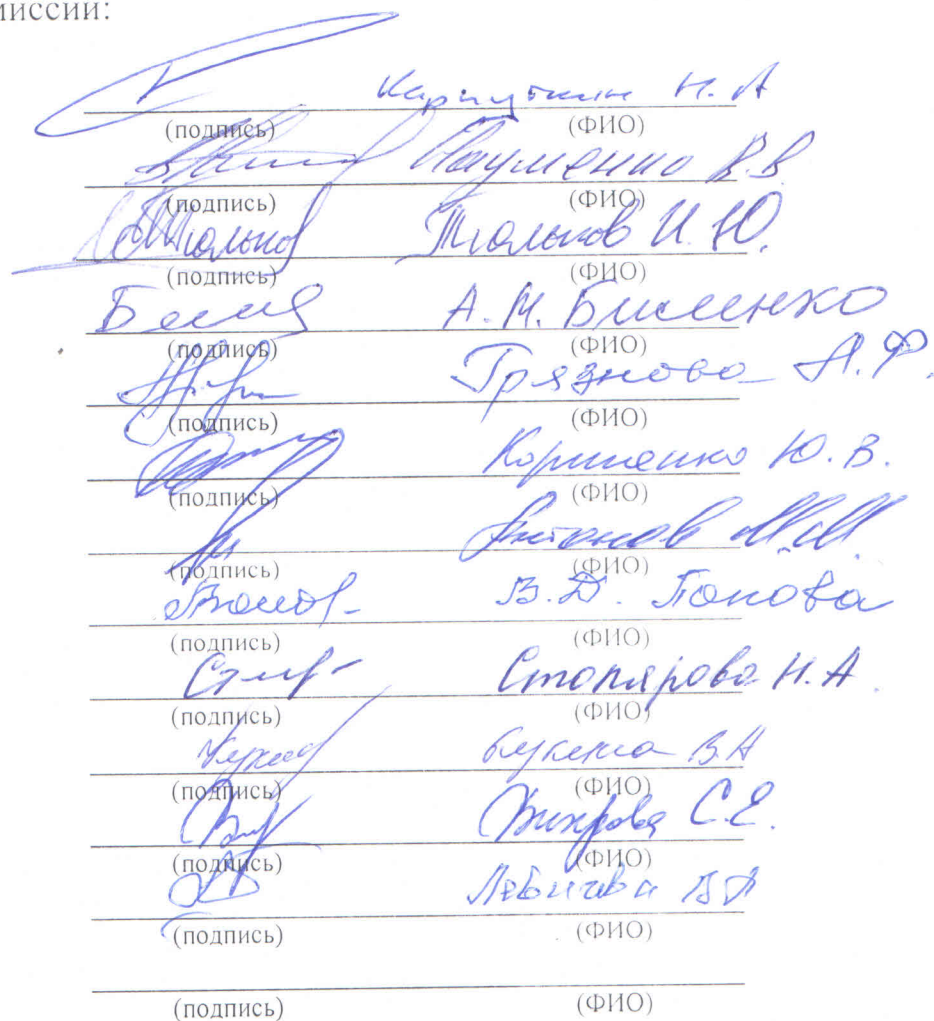 миссии:
Карпуткин Н. А
(подпись) (ФИО)
Науменко В.В.
(подпись) (ФИО)
Тюльков Тюльков И. Ю.
(подпись) (ФИО)
А. М. Бисенко
(подпись) (ФИО)
Грязнова А.Ф.
(подпись) (ФИО)
Корниенко Ю. В.
(подпись) (ФИО)
Антонов М.М.
(подпись) (ФИО)
В. Д. Попова
(подпись) (ФИО)
Столярова Н. А.
(подпись) (ФИО)
В А
(подпись) (ФИО)
Вихрова С.Е.
(подпись) (ФИО)
В А
(подпись) (ФИО)
(подпись) (ФИО)